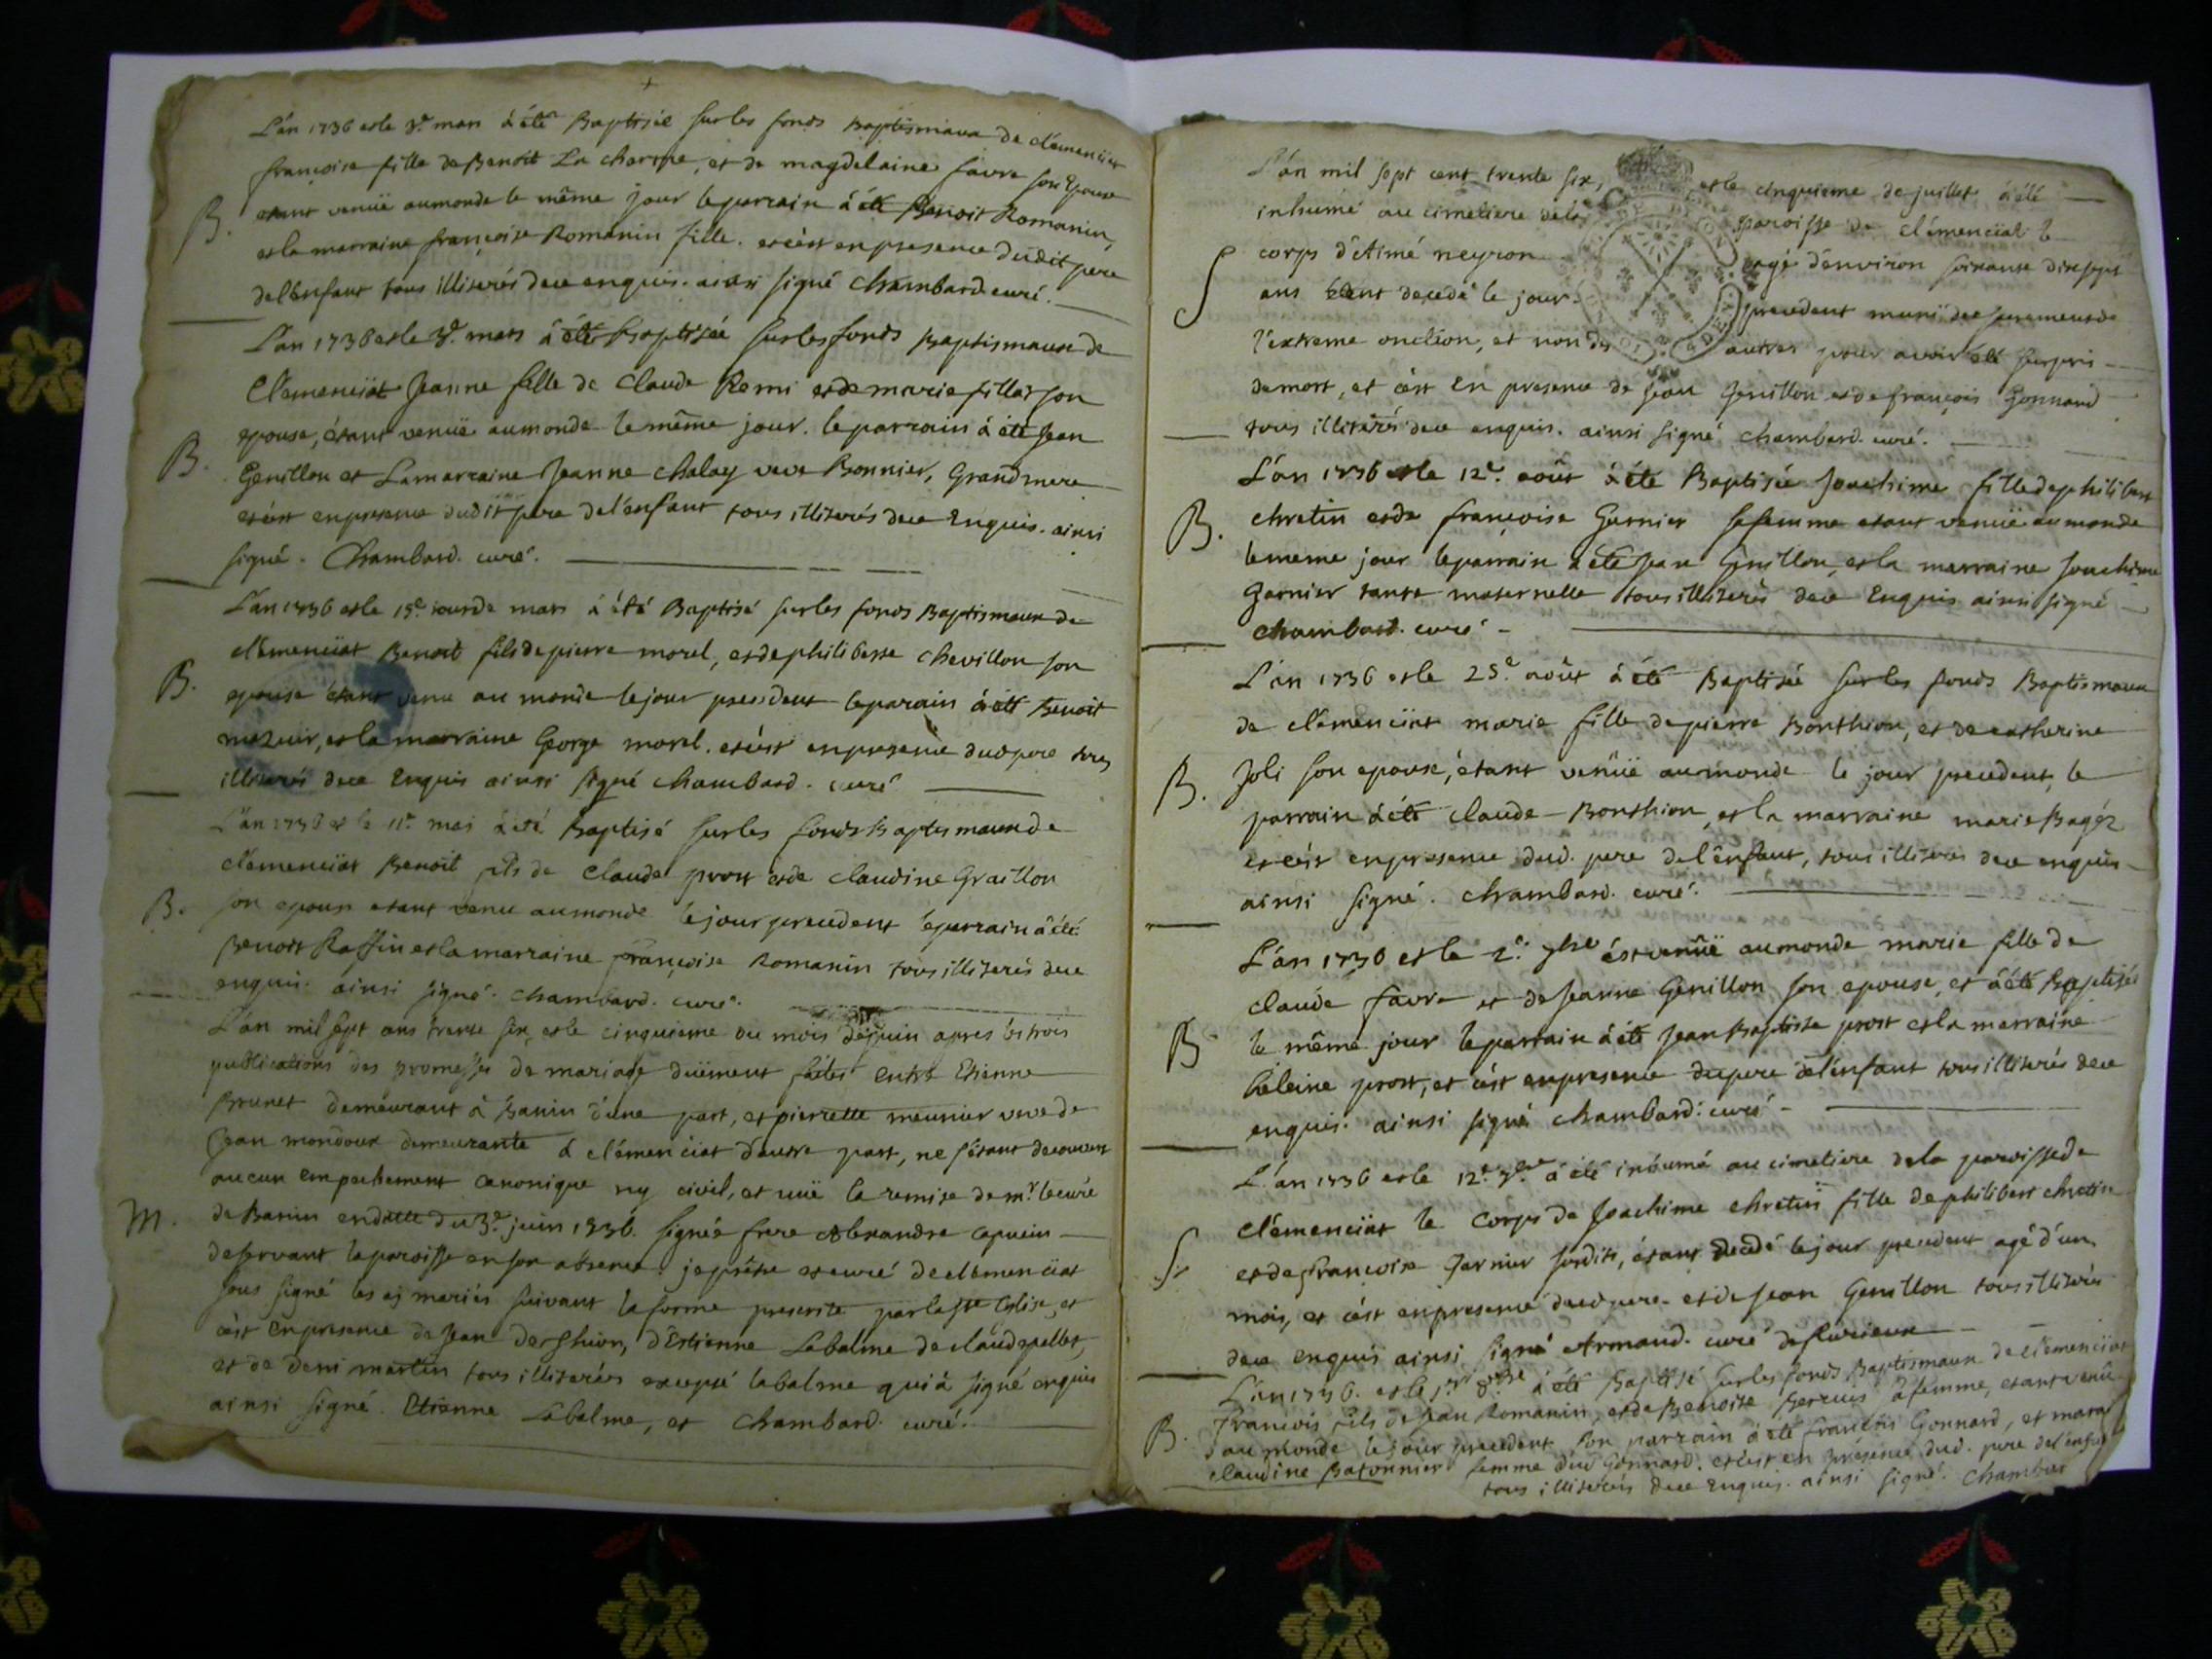 L'an 1736 et le 3e. mars à été Baptisée sur les fonds Baptismaux de clémenciat
françoise fille de Benoit La charme, et de magdelaine favre son Epouse
etant venuë au monde le même jour le parrain à été Benoit Romanin,
B.
et la marraine françoise Romanin fille. et c'est en presence dudit père
de l'enfant tous illiterés de ce enquis. ainsi signé Chambard curé.
L'an 1736 et le mars à été Baptisée sur les fonds Baptismaux de
Clémenciat Jeanne fille de Claude Remi et de marie fillat son
epouse, étant venuë au monde le même jour. le parrain à été Jean
B.
Genillon et La marraine Jeanne Chalay veve Bonnier, Grand mere
et c'est en presence dudit pere de l'enfant tous illiterés de ce Enquis. ainsi
signé. Chambard. curé.
L'an 1736 et le 15e jour de mars à été Baptisé sur les fonds Baptismaux de
clémenciat Benoit fils de pierre morel, et de philiberte Chevillon son
B.
epouse étant venu au monde le jour precedent le parain à été Benoit
et la marraine George morel. et c'est en presence dud pere tous
illiterés de ce Enquis ainsi signé Chambard. curé
L'an 1736 et le 11e. mai à été Baptisé sur les fonds Baptismaux de
clémenciat Benoit fils de Claude prost et de Claudine Graillon
B.
son epouse etant venu au monde le jour precedent le parrain à été
Benoit Raffin et la marraine françoise Romanin tous illiterés de ce
enquis. ainsi signé. Chambard. curé.
L'an mil sept ans trente six, et le cinquieme du mois de juin apres les trois
publications des promesses de mariage duëment faites entre Etienne
Brunet demeurant à Banin d'une part, et pierrette meunier veve de
Jean mondoux demeurante à clémenciat d'autre part, ne s'étant decouvert
aucun empechement canonique ny civil, et vuë la remise de mr. le curé
M.
de Banin en datte du 3e. juin 1736. signée frere Alexandre capucin
deservant la paroisse en son absence. je prêtre et curé de clémenciat
sous signé les ay mariés suivant la forme prescrite par la ste Eglise, et
c'est en presence de Jean d'Estienne Labalme de claude pellet,
et de Deni martin tous illiterés excepté labalme qui à signé enquis
ainsi signé. Etienne Labalme, et Chambard. curé.
L'an mil sept cent trente six, et le cinquieme de juillet à été
inhumé au cimetiere de la paroisse de clémenciat le
S
corps d'Aimé neyron agé d'environ soixante dix sept
ans étant decedé le jour precedent muni des sacremens de
l'extreme onction, et non des autres pour avoir été surpris
de mort, et c'est En presence de Jean Genillon et de françois Gonnard
tous illiterés de ce enquis. ainsi signé Chambard. curé.
L'an 1736 et le 12e. août à été Baptisée Joachime fille de philibert
B.
chretin et de françoise Garnier sa femme etant venuë au monde
le meme jour le parrain à été Jean Genillon, et la marraine Joachime
Garnier tante maternelle tous illiterés de ce Enquis ainsi signé
Chambard. curé
L'an 1736 et le 25e. août à été Baptisée sur les fonds Baptismaux
de clémenciat marie fille de pierre Bonthion, et de catherine
B.
Joli son epouse, étant venuë au monde le jour precedent, le
parrain à été claude Bonthion, et la marraine marie Bagéz
et c'est en presence dud. pere de l'enfant, tous illiterés de ce enquis
ainsi signé. Chambard. curé.
L'an 1736 et le 2e. 7bre est venuë au monde marie fille de
claude favre et de Jeanne Genillon son epouse, et à été Baptisée
B
le même jour le parrain à été Jean Baptiste prost et la marraine
heleine prost, et c'est en presence du pere de l'enfant tous illiterés de ce
enquis. ainsi signé Chambard. curé
L'an 1736 et le 12e. 7bre à été inhumé au cimetiere de la paroisse de
Clémenciat le corps de Joachime chretin fille de philibert chretin
S
et de françoise Garnier susdits, étant decedé le jour precedent agé d'un
mois, et c'est en presence dud pere et de Jean Genillon tous illiterés
de ce enquis ainsi signé Armand. curé de
L'an 1736. et le 1er 8bre à été Baptisé sur les fonds Baptismaux de clémenciat
françois fils de Jean Romanin, et de Benoite sa femme, etant venu
B.
au monde le jour precedent son parrain à été françois Gonnard, et mara
claudine Batonnier femme dud Gonnard. et c'est en presence dud. pere de l'enfant
tous illiterés de ce Enquis. ainsi signé. Chambar